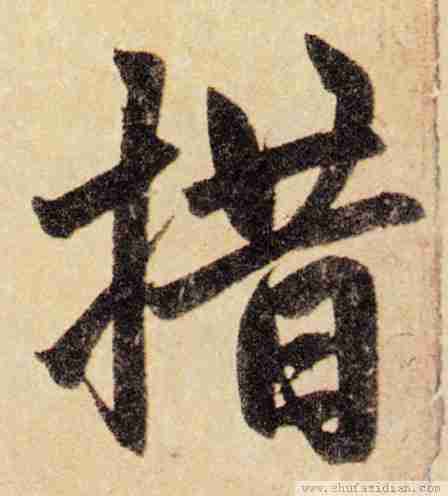 措
www.shufazidian.com